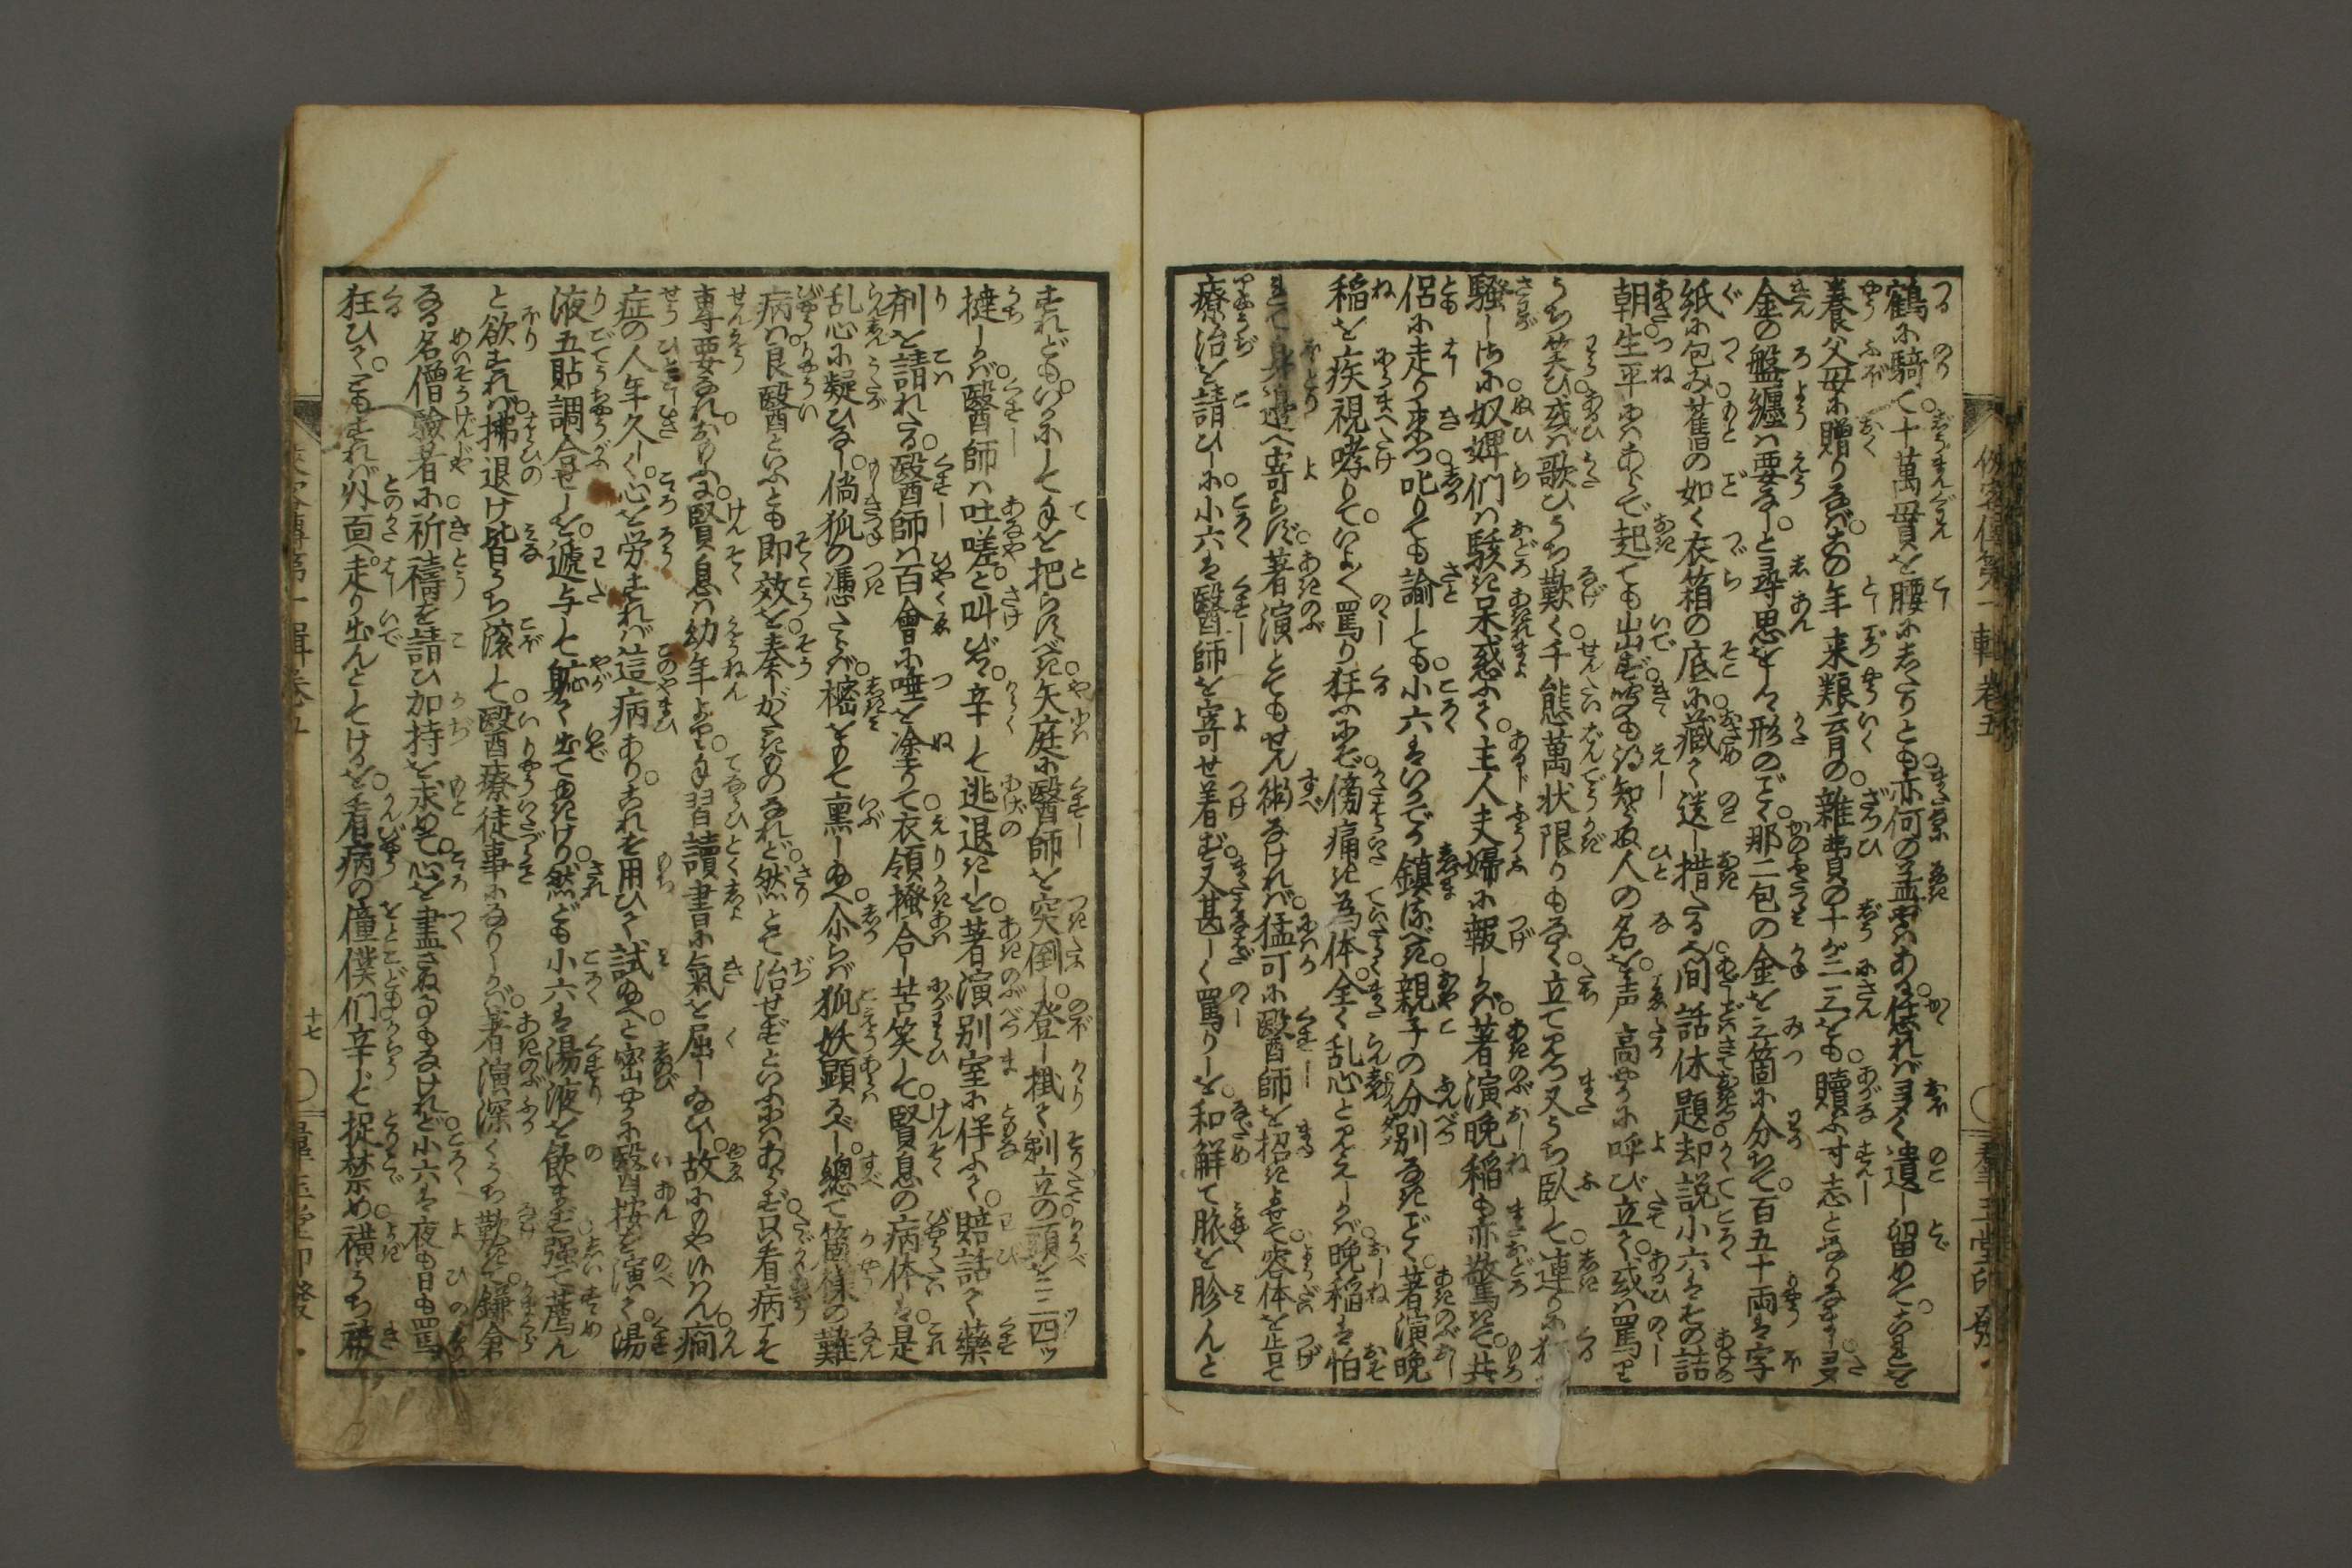 鶴に騎て。十萬貫を腰にすとも。亦何の益かはある。任れバヨク遺し留めて。これを
養父母に贈りなバ。この年来粮育の。雑費の十が二三をも贖ふ寸志となりなまし。ヨヌ
金の盤纏ハ要なし。と尋思をしつゝ形のごとく。那二包の金を三箇に分ちて。百五十両は字
紙に包み。舊の如く衣箱の底に。藏めて送し措たる。間話休題却説小六はその詰
朝。生平にはあらで起ても出ず。呼も得知らぬ人の名を。声高やかに呼び立て。或ハ罵り
うち笑ひ。或ハ歌ひうち歎く。千態萬状限りもなく。立て見つ又うち臥して。連りに狂
騒しさに。奴婢們ハ駭き呆惑ふて。主人夫婦に報しかバ。著演晩稲も亦驚きて。共
侶に走り来つ。叱りても諭しても。小六はいかでか鎮るべき。親子の分別なきごとく。著演晩
稲を疾視哮りて。いよゝ罵り狂ふにぞ。傍痛き為体。全く乱心と見えしかバ。晩稲は怕
れて身邊へ寄らず。著演とてもせん術なけれバ。猛可に醫師を招きよせて。容体を告て
療治を請ひしに。小六は醫師を寄せ著ず。又甚しく罵りしを。和解て脉を胗んと
すれども。いかにして手を把らすべき。矢庭に醫師を突倒し。登し掛て剃立の頭を三四ッ
撻しかバ。醫師ハ吐嗟と叫びつゝ。辛して逃退きしを。著演別室に伴ふて。賠話て藥
剤を請れたる。醫師ハ百會に唾を塗りて。衣領搔合し苦笑して。賢息の病体は。是
乱心に疑ひなし。倘狐の憑たらバ。樒をもて熏しゆへ。尒らバ狐妖顕るべし。總て箇様の難
病ハ。良醫といふとも即效を。奏しがたきものなれど。然とて治せずといふにハあらず。只看病こそ
専要なれ。おもふに賢息ハ幼年より。手習讀書に氣を屈しゐひし。故にもやあらん。癇
症の人年久しく。心を労すれバ。這病あり。これを用ひて試ゆへと。密やかに醫按を演て。湯
液五貼調合せしを。遞与して躯て出てゆきけり。然ども小六は湯液を飲まず。強て薦ん
と欲すれバ。拂退け皆うち滾して。醫療徒事になりしかバ。著演深くうち歎きて。鎌倉
なる名僧驗者に。祈禱を請ひ加持を求めて。心を盡さぬ事もなけれど。小六は夜も日も罵
狂ひて。ともすれバ外面へ。走り出んとしてけるを。看病の僮僕們。辛じて捉禁め。横うち被
侠客傳第一輯巻五
十七